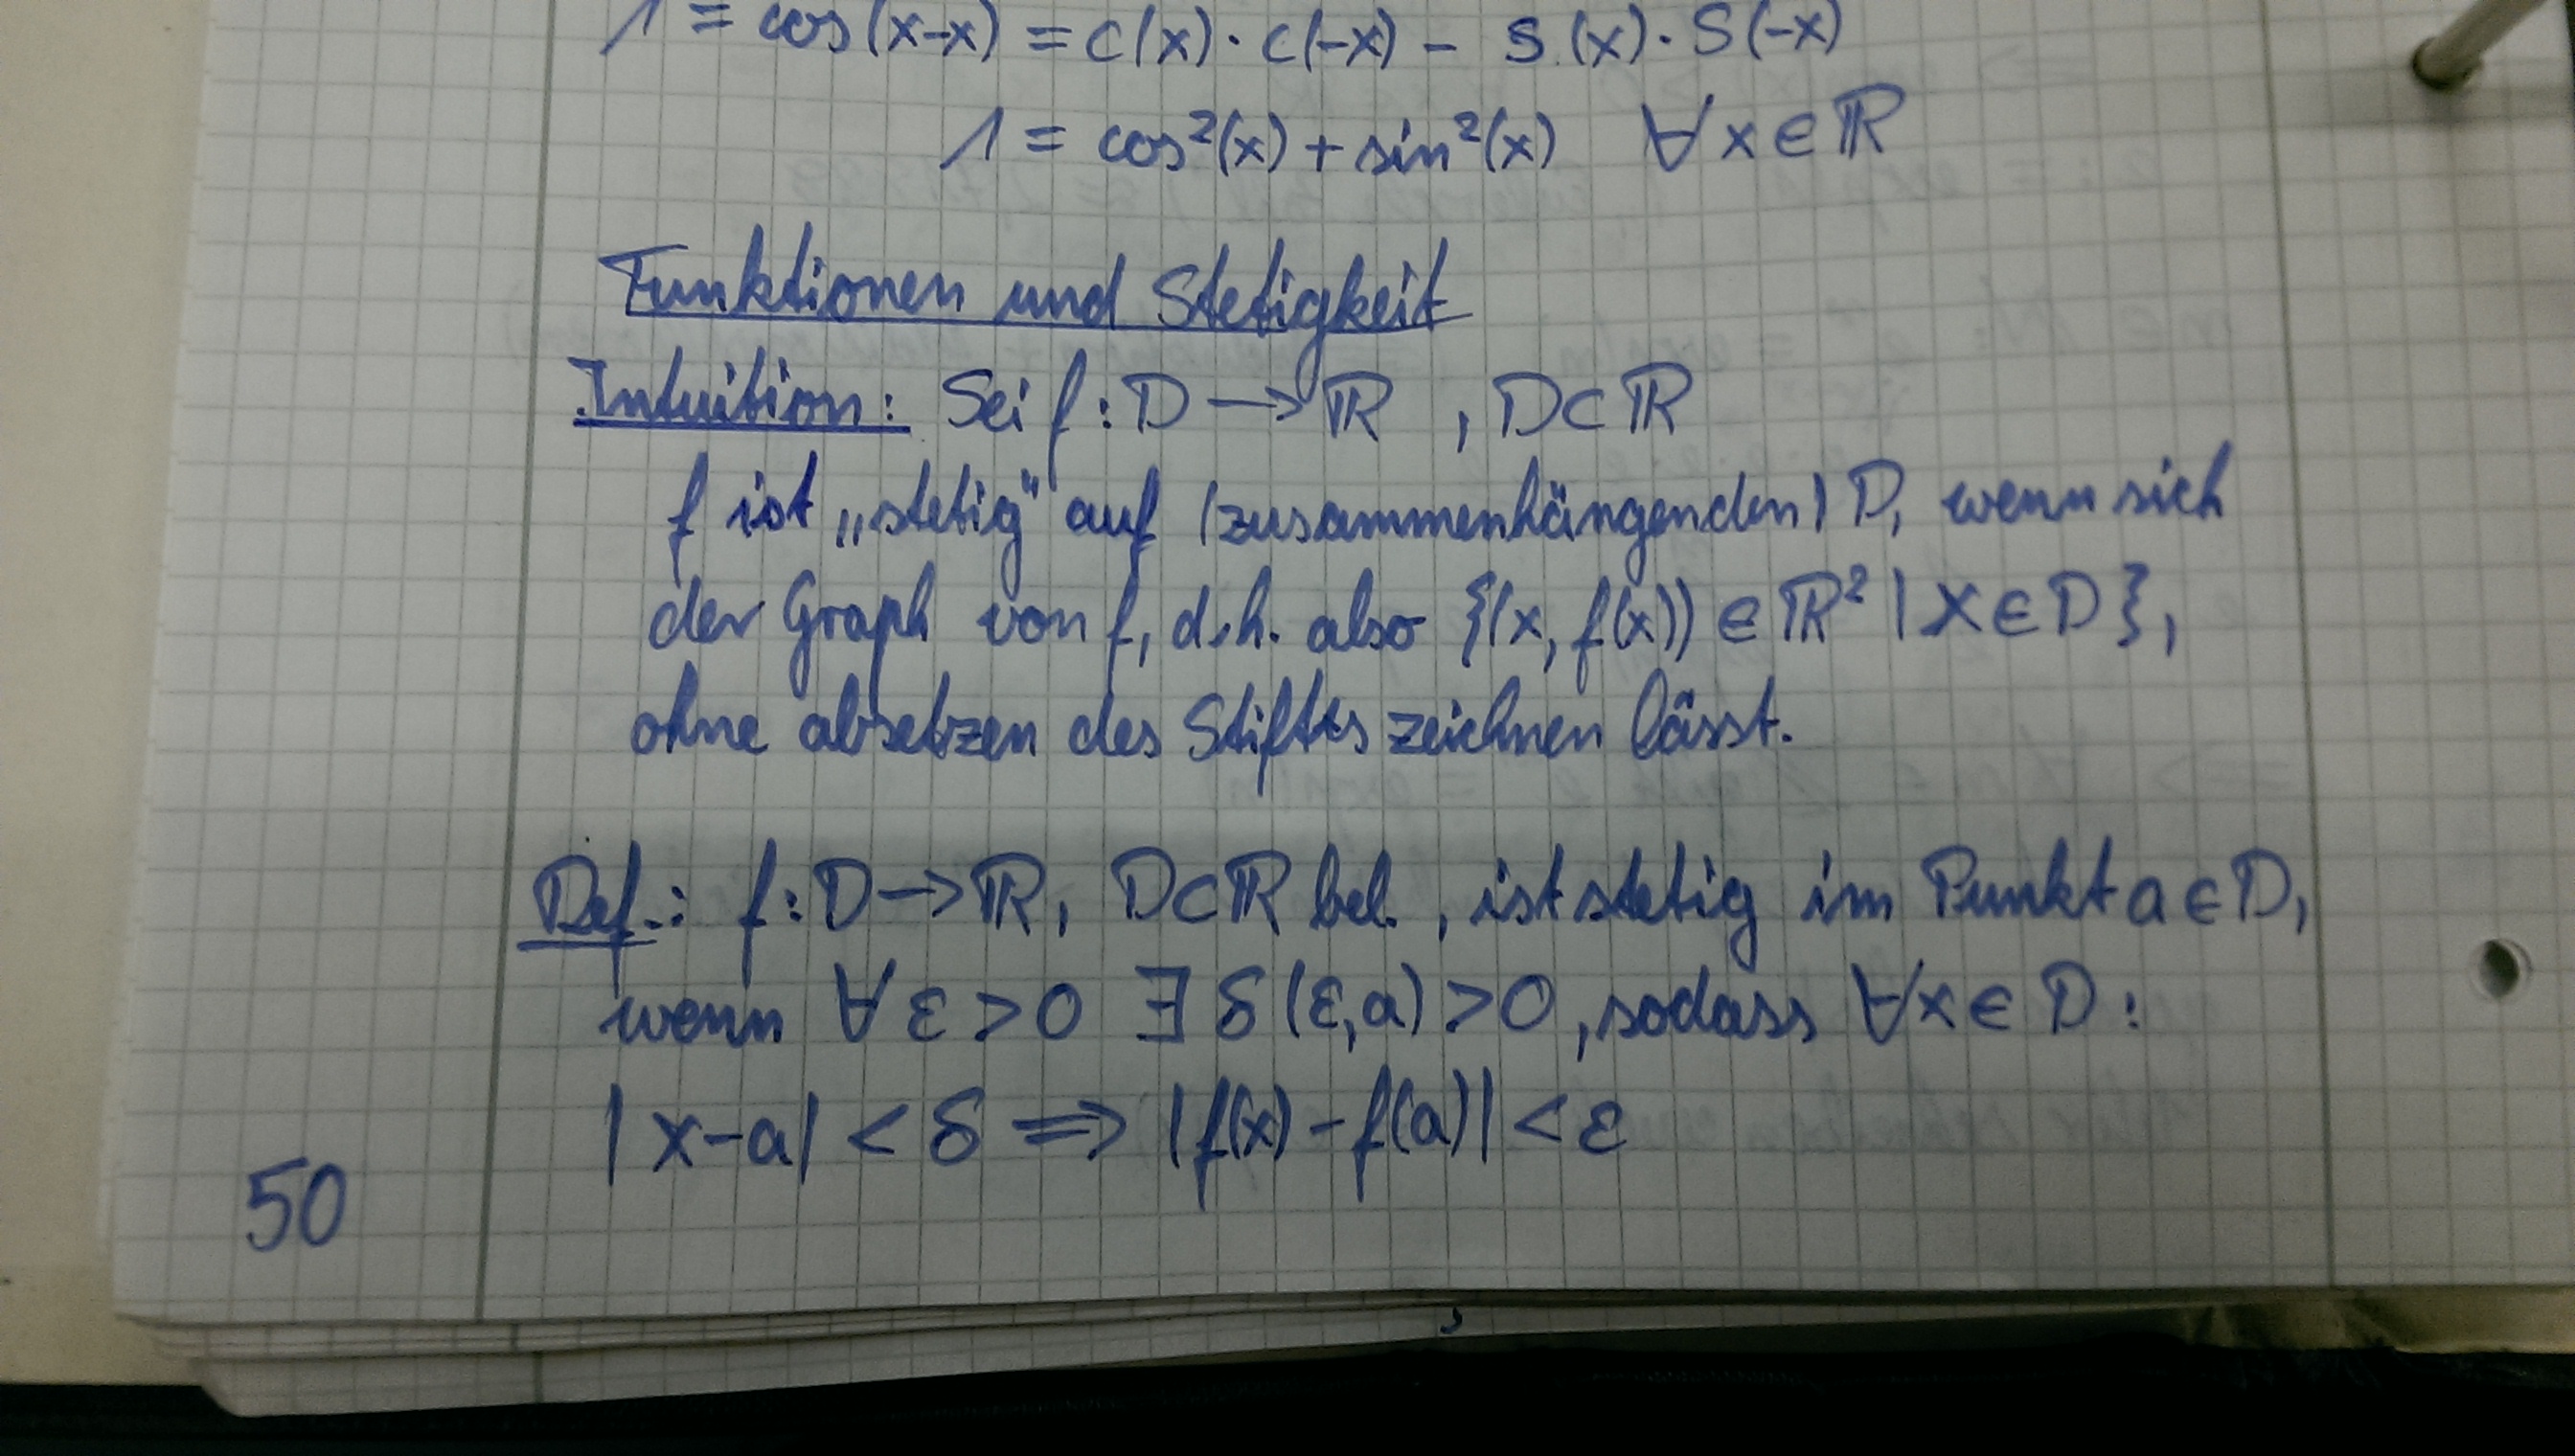 1 = cos(x-x) = c(x) · c(-x) - s(x) · s(-x)
1 = cos²(x) + sin²(x) ∀x∈ℝ
Funktionen und Stetigkeit
Intuition: Sei f: D → ℝ, D⊂ℝ
f ist „stetig" auf (zusammenhängenden) D, wenn sich
der Graph von f, d.h. also {(x, f(x)) ∈ ℝ² | x∈D},
ohne absetzen des Stiftes zeichnen lässt.
Def.: f: D → ℝ, D⊂ℝ bel., ist stetig im Punkt a∈D,
wenn ∀ ε > 0 ∃ δ(ε,a) > 0, sodass ∀x∈D:
|x-a| < δ ⟹ |f(x) - f(a)| < ε
50